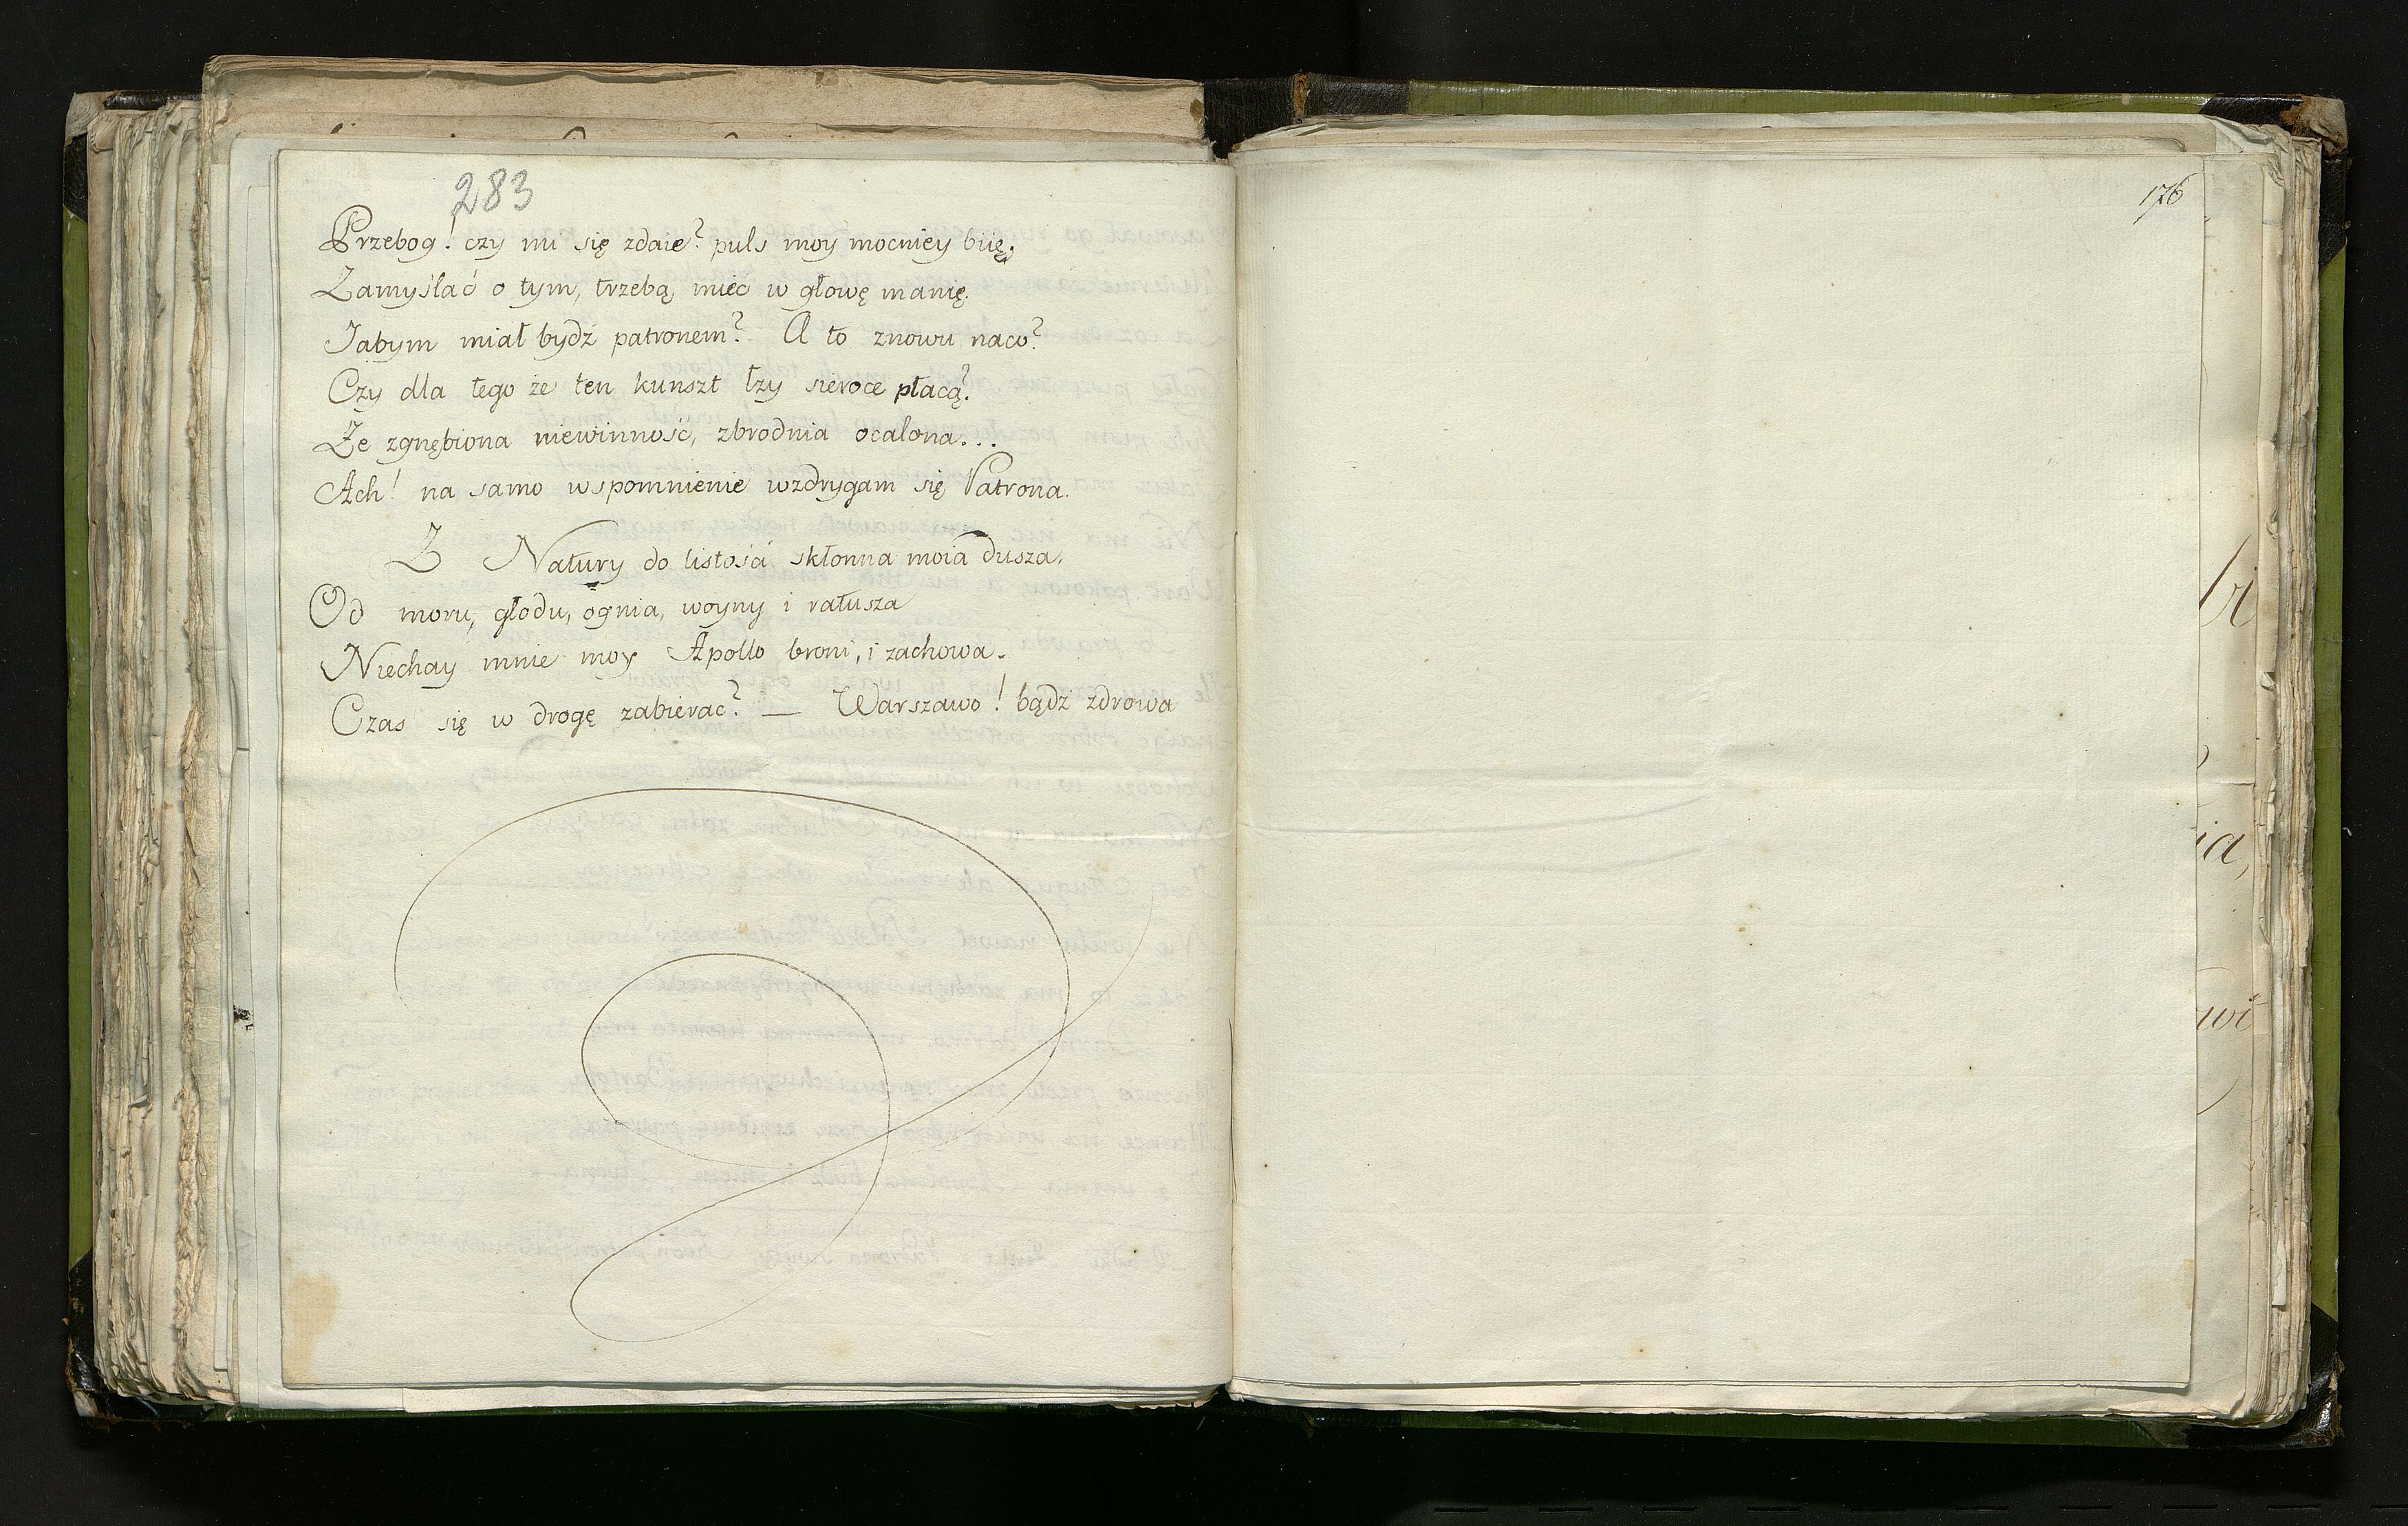 283
Przebog! czy mi się zdaie? puls moy mocniey biię,
Zamyślać o tym, trzebą mieć w głowę manię.
Iabym miał bydź patronem? A to znowu naco?
Czy dla tego że ten kunszt łzy sieroce płacą?
Że zgnębiona niewinność, zbrodnia ocalona...
Ach! na samo wspomnienie wzdrygam się Patrona.
Z Natury do listości skłonna moia dusza.
Od moru, głodu, ognia, woyny i ratusza
Niechay mnie moy Apollo broni, i zachowa.
Czas się w drogę zabierać? — Warszawo! bądź zdrowa
176
ia,
wi